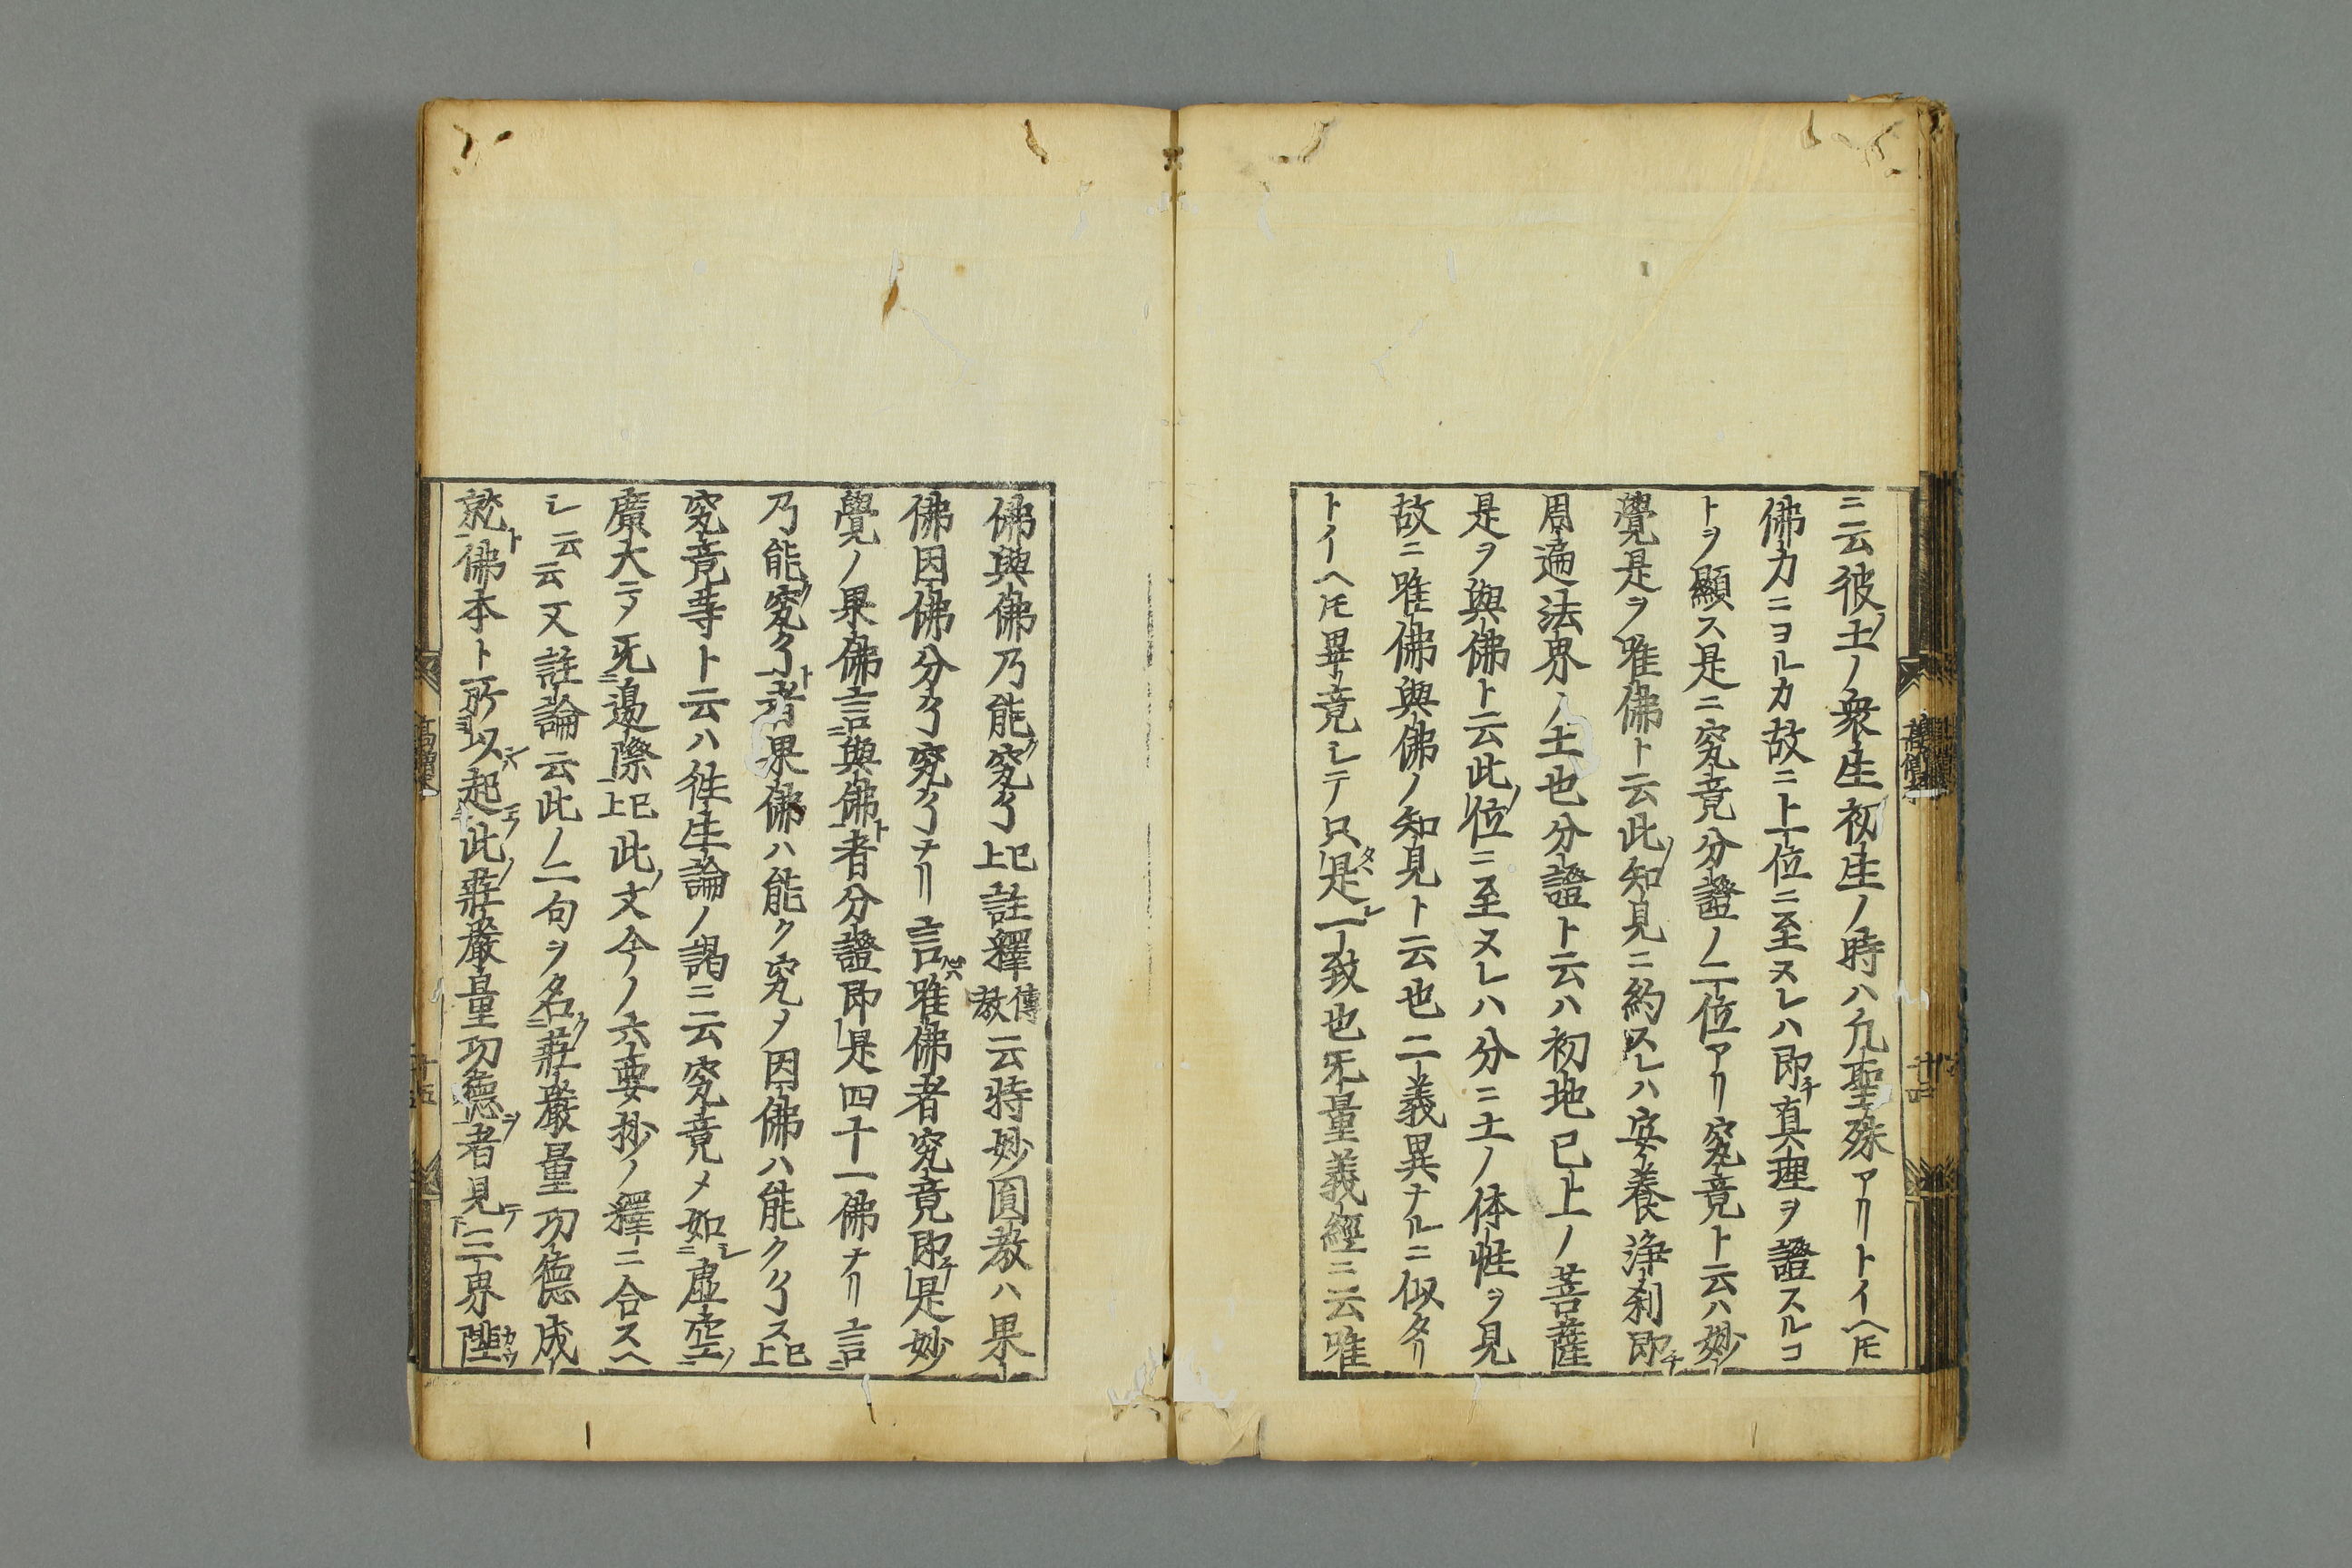 ニ云彼ノ土ノ衆生初生ノ時ハ凢聖殊アリトイヘ𪜈
佛力ニヨルカ故ニト十位ニ至ヌレハ即チ真理ヲ證スルコ
トヲ顯ス是ニ究竟分證ノ二位アリ究竟ト云ハ妙
覺是ヲ唯佛ト云此ノ知見ニ約スレハ安養淨刹即チ
周遍法界ノ土也分證ト云ハ初地已上ノ菩薩
是ヲ與佛ト云此ノ位ニ至ヌレハ分ニ土ノ体性ヲ見
故ニ唯佛與佛ノ知見ト云也二義異ナルニ似タリ
トイヘ𪜈畢竟シテ只タ是レ一致也无量義經ニ云唯
佛與佛乃能ク究了已上註釋傳教云特妙圓教ハ果
佛因佛分了究了ナリ言唯佛者究竟即チ是妙
覺ノ果佛言與佛ト者分證即是四十一佛ナリ言
乃能ク究了ト者果佛ハ能ク究メ因佛ハ能ク了ス已上
究竟等ト云ハ往生論ノ謁ニ云究竟メ如シ虚空ノ
廣大ニメ无邊際已上此ノ文今ノ六要抄ノ釋ニ合スヘ
シ云云又註論云此ノ二句ヲ名ク莊嚴量功德成
就ト佛本ト所以起此ノ莊嚴量功德ヲ者見テ三界陿
高僧
十五
十四